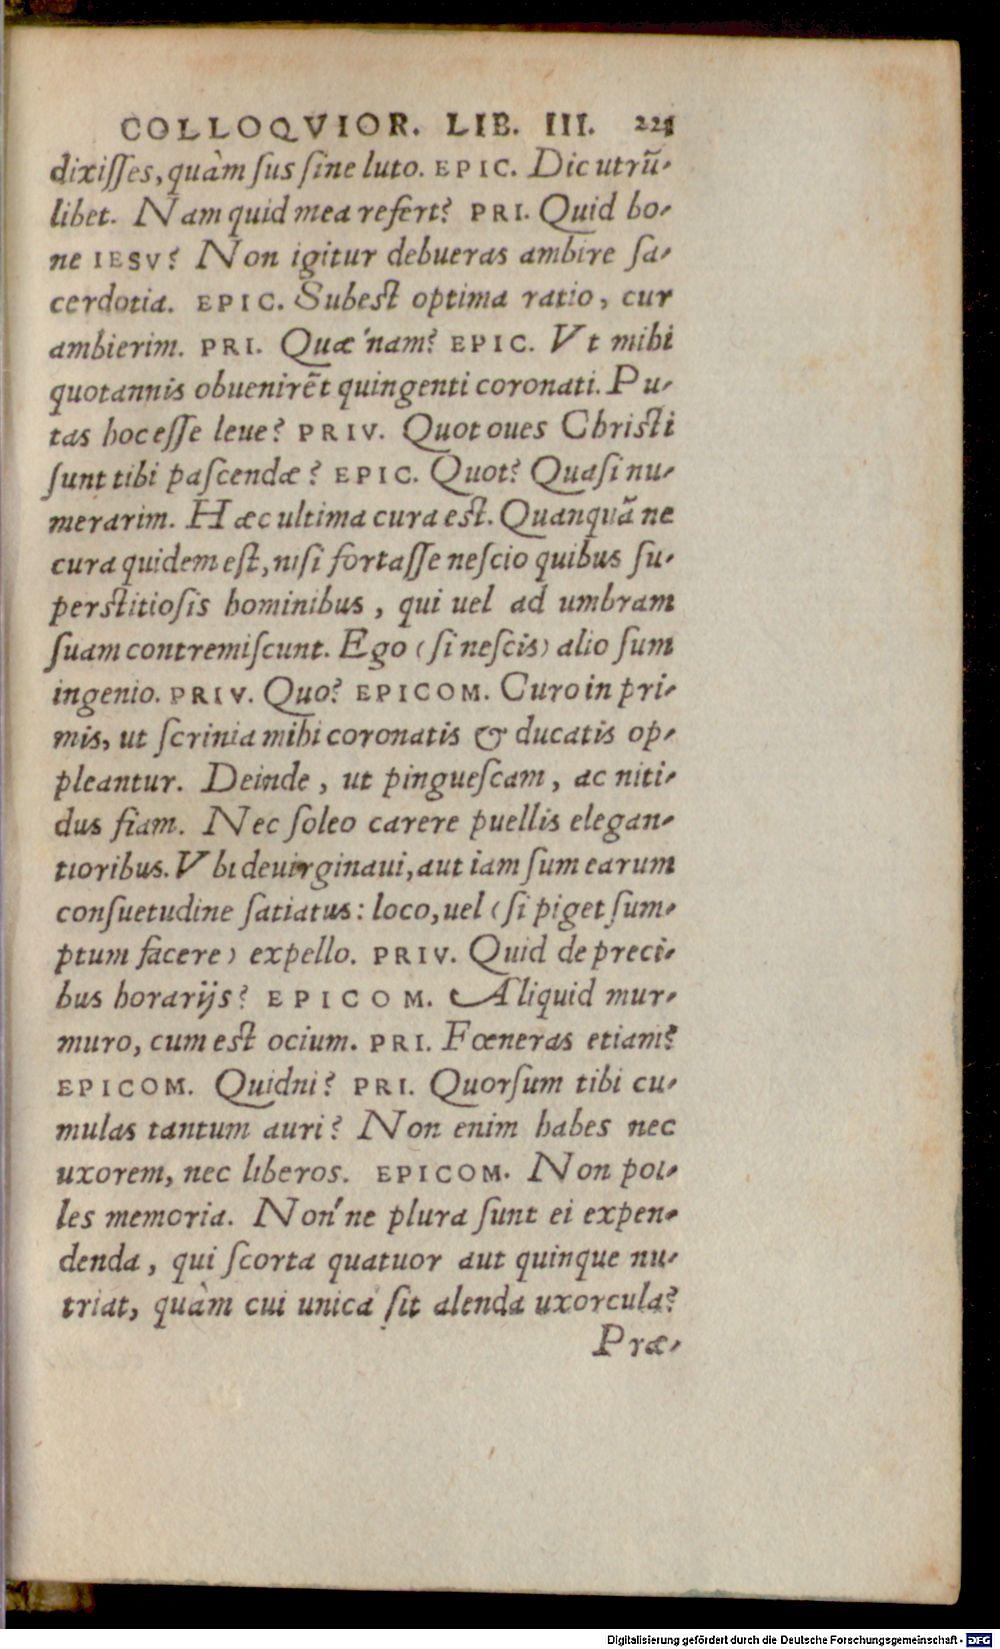 COLLOQVIOR. LIB. III. 221
dixiſſes, quàm ſus ſine luto. EPIC. Dic utrũ-
libet. Nam quid mea refert? PRI. Quid bo-
ne IESV? Non igitur debueras ambire ſa-
cerdotia. EPIC. Subeſt optima ratio, cur
ambierim. PRI. Quæ'nam? EPIC. Vt mihi
quotannis obuenirẽt quingenti coronati. Pu-
tas hoc eſſe leue? PRIV. Quot oues Chriſti
ſunt tibi paſcendæ? EPIC. Quot? Quaſi nu-
merarim. Hæc ultima cura eſt. Quanquã ne
cura quidem eſt, niſi fortaſſe neſcio quibus ſu-
perſtitioſis hominibus, qui uel ad umbram
ſuam contremiſcunt. Ego (ſi neſcis) alio ſum
ingenio. PRIV. Quo? EPICOM. Curo in pri-
mis, ut ſcrinia mihi coronatis & ducatis op-
pleantur. Deinde, ut pingueſcam, ac niti-
dus fiam. Nec ſoleo carere puellis elegan-
tioribus. Vbi deuirginaui, aut iam ſum earum
conſuetudine ſatiatus: loco, uel (ſi piget ſum-
ptum facere) expello. PRIV. Quid de preci-
bus horarijs? EPICOM. Aliquid mur-
muro, cum eſt ocium. PRI. Fœneras etiam?
EPICOM. Quidni? PRI. Quorſum tibi cu-
mulas tantum auri? Non enim habes nec
uxorem, nec liberos. EPICOM. Non pol-
les memoria. Non'ne plura ſunt ei expen-
denda, qui ſcorta quatuor aut quinque nu-
triat, quàm cui unica ſit alenda uxorcula?
Præ-
Digitalisierung gefördert durch die Deutsche Forschungsgemeinschaft - DFG